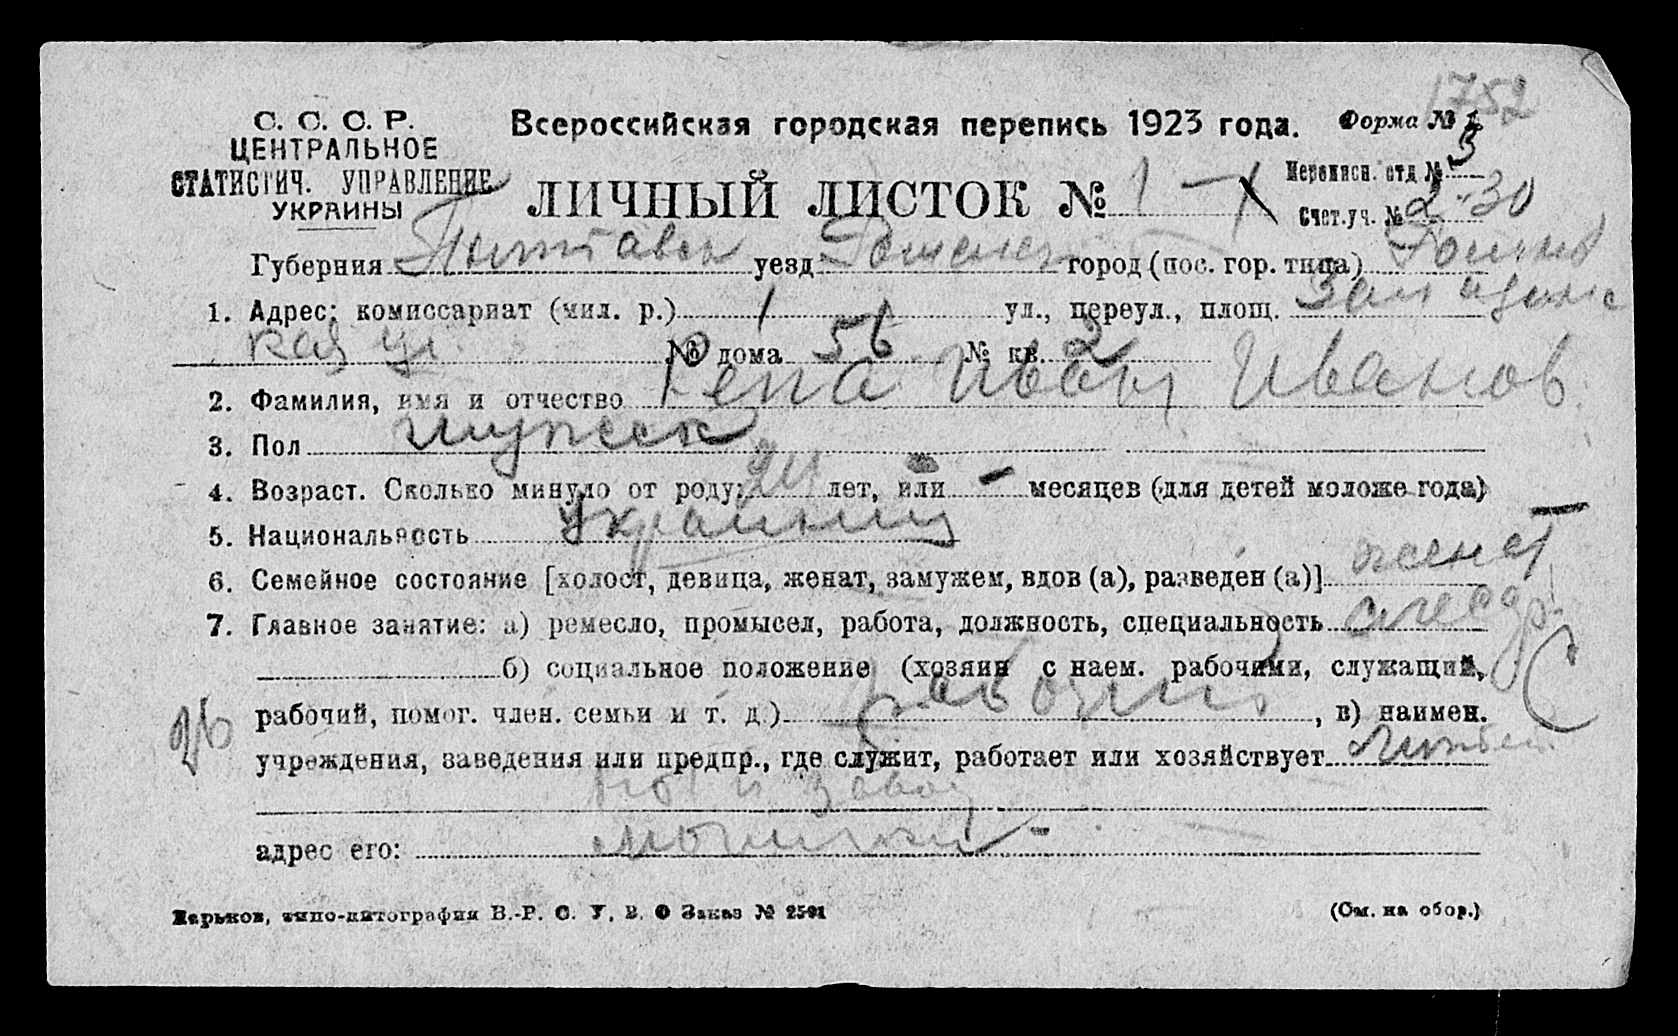 1752
С. С. С. Р.
ЦЕНТРАЛЬНОЕ
СТАТИСТИЧ. УПРАВЛЕНИЕ
УКРАИНЫ
Всероссийская городская перепись 1923 года.
Форма № 1
ЛИЧНЫЙ ЛИСТОК № 1 - 1
Переписн. отд № 3
Счет. уч. № 2-30
Губерния Полтавск уезд Роменск город (пос. гор. типа) Ромны
1. Адрес: комиссариат (мил. р.) 1 ул., переул., площ.
кая ул. № дома 56 № кв. 2
2. Фамилия, имя и отчество Репа Иван Иванов
3. Пол мужск
4. Возраст. Сколько минуло от роду: 24 лет, или - месяцев (для детей моложе года)
5. Национальность Украинец
6. Семейное состояние [холост, девица, женат, замужем, вдов (а), разведен (а)] женат
7. Главное занятие: а) ремесло, промысел, работа, должность, специальность
б) социальное положение (хозяин с наем. рабочими, служащий,
рабочий, помог. член. семьи и т. д.) рабочий, в) наимен.
учреждения, заведения или предпр., где служит, работает или хозяйствует
завод
адрес его:
Харьков, типо-литография В.-Р. С. У. В. О Заказ № 2591
(См. на обор.)